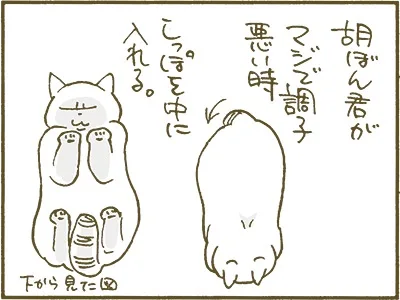 胡ぼん君が
マジで調子
悪い時
しっぽを中に
入れる。
下から見てた図